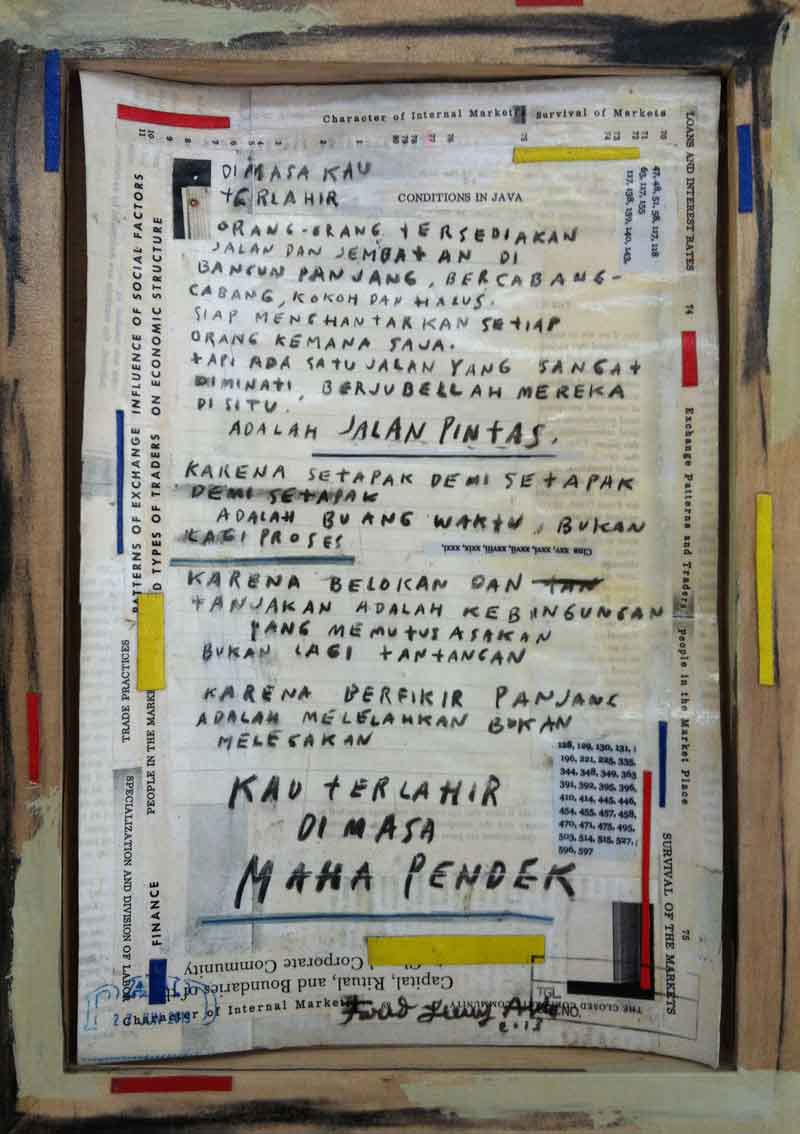 Character of Internal Markets Survival of Markets
DI MASA KAU
TERLAHIR
CONDITIONS IN JAVA
47, 48, 51, 58, 127, 128
ORANG-ORANG TERSEDIAKAN
JALAN DAN JEMBATAN DI
BANGUN PANJANG, BERCABANG-
CABANG, KOKOH DAN HALUS.
SIAP MENGHANTARKAN SETIAP
ORANG KEMANA SAJA.
TAPI ADA SATU JALAN YANG SANGAT
DIMINATI, BERJUBELLAH MEREKA
DI SITU.
ADALAH JALAN PINTAS.
KARENA SETAPAK DEMI SETAPAK
DEMI SETAPAK
ADALAH BUANG WAKTU, BUKAN
LAGI PROSES
KARENA BELOKAN DAN TAN
TANJAKAN ADALAH KEBINGUNGAN
YANG MEMUTUS ASAKAN
BUKAN LAGI TANTANGAN
KARENA BERFIKIR PANJANG
ADALAH MELELAHKAN BUKAN
MELEGAKAN
128, 129, 130, 131,
196, 221, 225, 335,
344, 348, 349, 363
391, 392, 395, 396,
410, 414, 445, 446,
454, 455, 457, 458,
470, 471, 475, 495,
503, 514, 515, 527,
596, 597
KAU TERLAHIR
DI MASA
MAHA PENDEK
PATTERNS OF EXCHANGE INFLUENCE OF SOCIAL FACTORS
TYPES OF TRADERS ON ECONOMIC STRUCTURE
TRADE PRACTICES
PEOPLE IN THE MARKET
SPECIALIZATION AND DIVISION OF LABOR
FINANCE
LOANS AND INTEREST RATES
74
Exchange Patterns and Traders People in the Market Place
SURVIVAL OF THE MARKETS
75
Corporate Community
Capital, Ritual, and Boundaries of the
Character of Internal Markets
TGL.
NO.
THE CLOSED CORPORATE COMMUNITY
2013